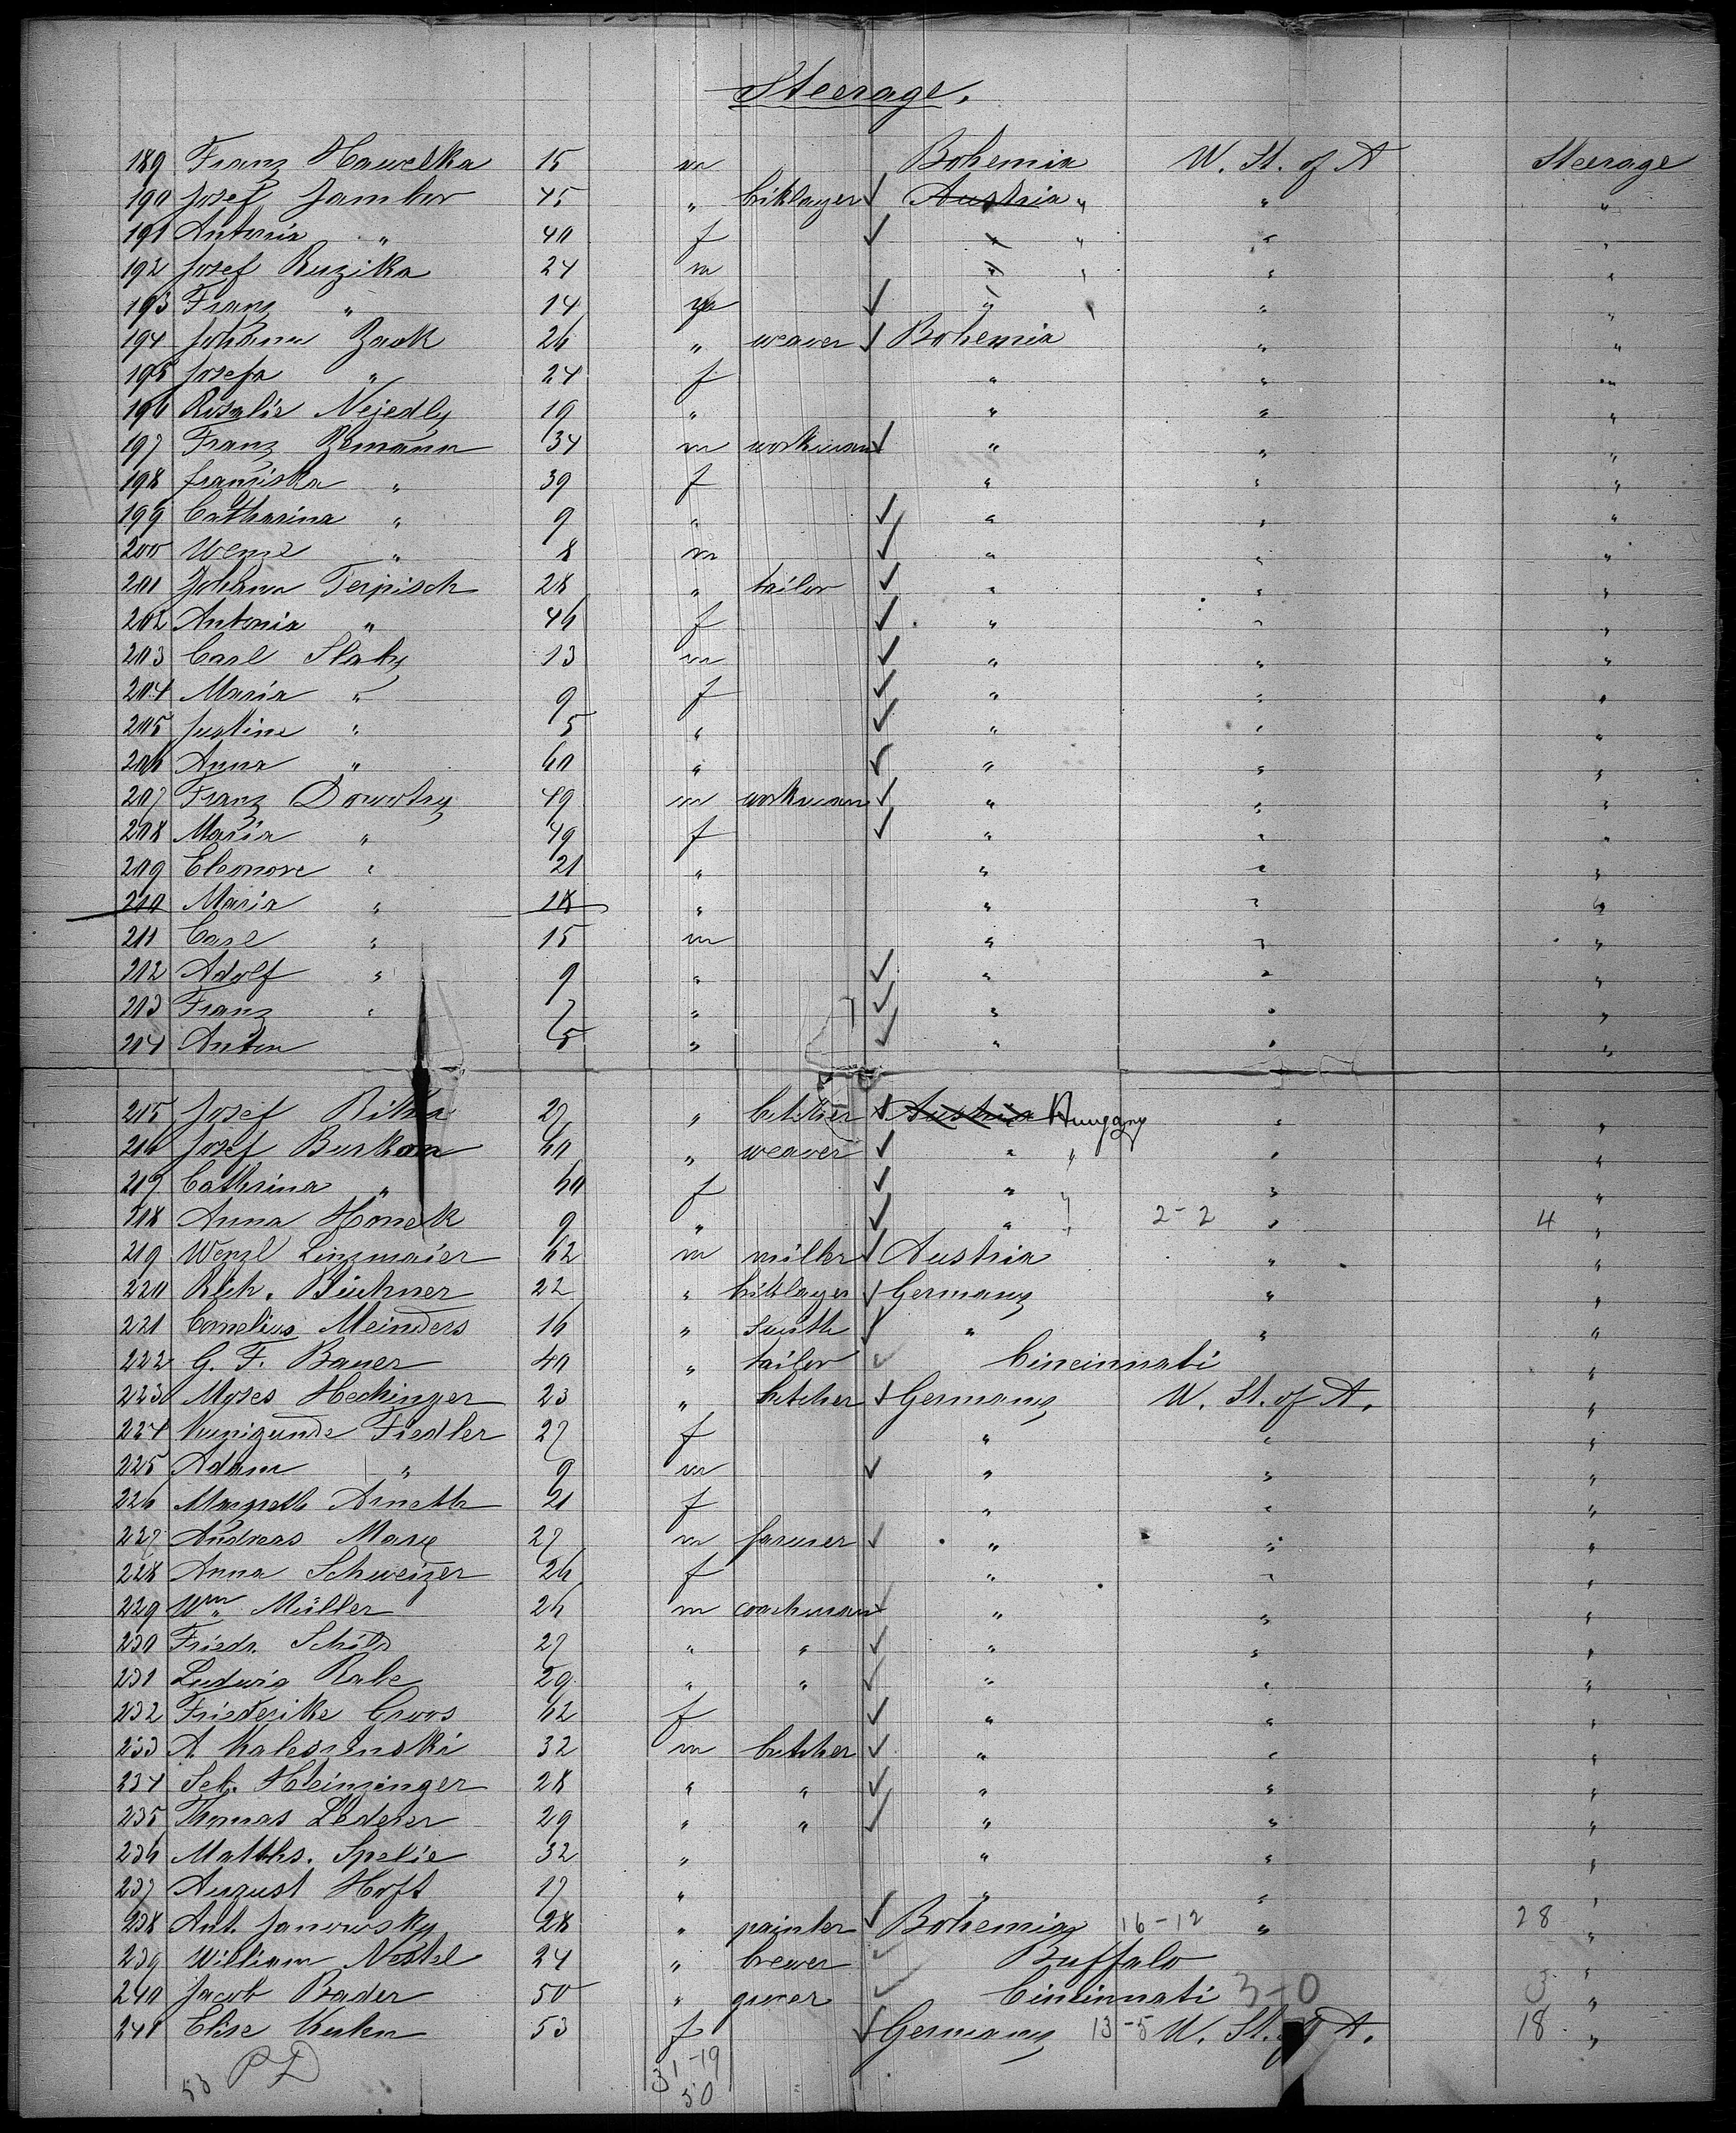 Steerage.
189 Franz Hawelka 15 m Bohemia U. St. of A Steerage
190 Josef Jambor 45 " briklayer ✓ Austria " " "
191 Antonia " 40 f ✓ " " " "
192 Josef Ruzika 24 m " " " "
193 Franz " 14 m ✓ " " "
194 Johann Zack 26 " weaver ✓ Bohemia " "
195 Josefa " 24 f " " "
196 Rosalie Nejedly 19 " " " "
197 Franz Zemann 34 m workman ✓ " " "
198 Franziska " 39 f " " "
199 Catharina " 9 " ✓ " " "
200 Wenzl " 8 m ✓ " " "
201 Johann Terpisch 28 " tailor ✓ " " "
202 Antonia " 46 f ✓ " " "
203 Carl Slaby 13 m ✓ " " "
204 Maria " 9 f ✓ " " "
205 Justine " 5 " ✓ " " "
206 Anna " 60 " ✓ " " "
207 Franz Dowotny 49 m workman ✓ " " "
208 Maria " 49 f ✓ " " "
209 Eleonore " 21 " " " "
210 Maria " 18 " " " "
211 Carl " 15 m " " "
212 Adolf " 9 " ✓ " " "
213 Franz " 7 " ✓ " " "
214 Anton 5 " ✓ " " "
215 Josef 27 " butcher ✓ Austria Hungary " "
216 Josef 60 " weaver ✓ " " " "
217 Cathrina " 60 f ✓ " " " "
218 Anna Honek 9 " ✓ " " 2-2 " 4 "
219 Wenzl Linzmaier 62 m miller ✓ Austria " "
220 Rich. Büchner 22 " briklayer ✓ Germany " "
221 Cornelius Meinders 16 " smith ✓ " " "
222 G. F. Bauer 40 " tailor ✓ Cincinnati "
223 Moses Hechinger 23 " butcher ✓ Germany U. St. of A. "
224 Kunigunde Fiedler 27 f " " "
225 Adam " 9 m ✓ " " "
226 Margreth Arneth 21 f " " "
227 Andreas Marx 27 m farmer ✓ " " "
228 Anna Schweizer 26 f " " "
229 Wm. Müller 26 m coachman ✓ " " "
230 Friedr. Schild 27 " " ✓ " " "
231 Ludwig Rabe 29 " " ✓ " " "
232 Friederike Croos 62 f ✓ " " "
233 A. Kalesinski 32 m butcher ✓ " " "
234 Seb. Heinzinger 28 " " ✓ " " "
235 Thomas Lederer 29 " " ✓ " " "
236 Matths. Spelie 32 " " " "
237 August Hoft 17 " " " "
238 Ant. Janowsky 28 " painter ✓ Bohemia 16-12 " 28 "
239 William Nestel 24 " brewer ✓ Buffalo "
240 Jacob Bader 50 " grocer ✓ Cincinnati 3-0 3 "
241 Elise Kuhn 53 f ✓ Germany 13-5 U. St. of A. 18 "
53 PD 31-19
50